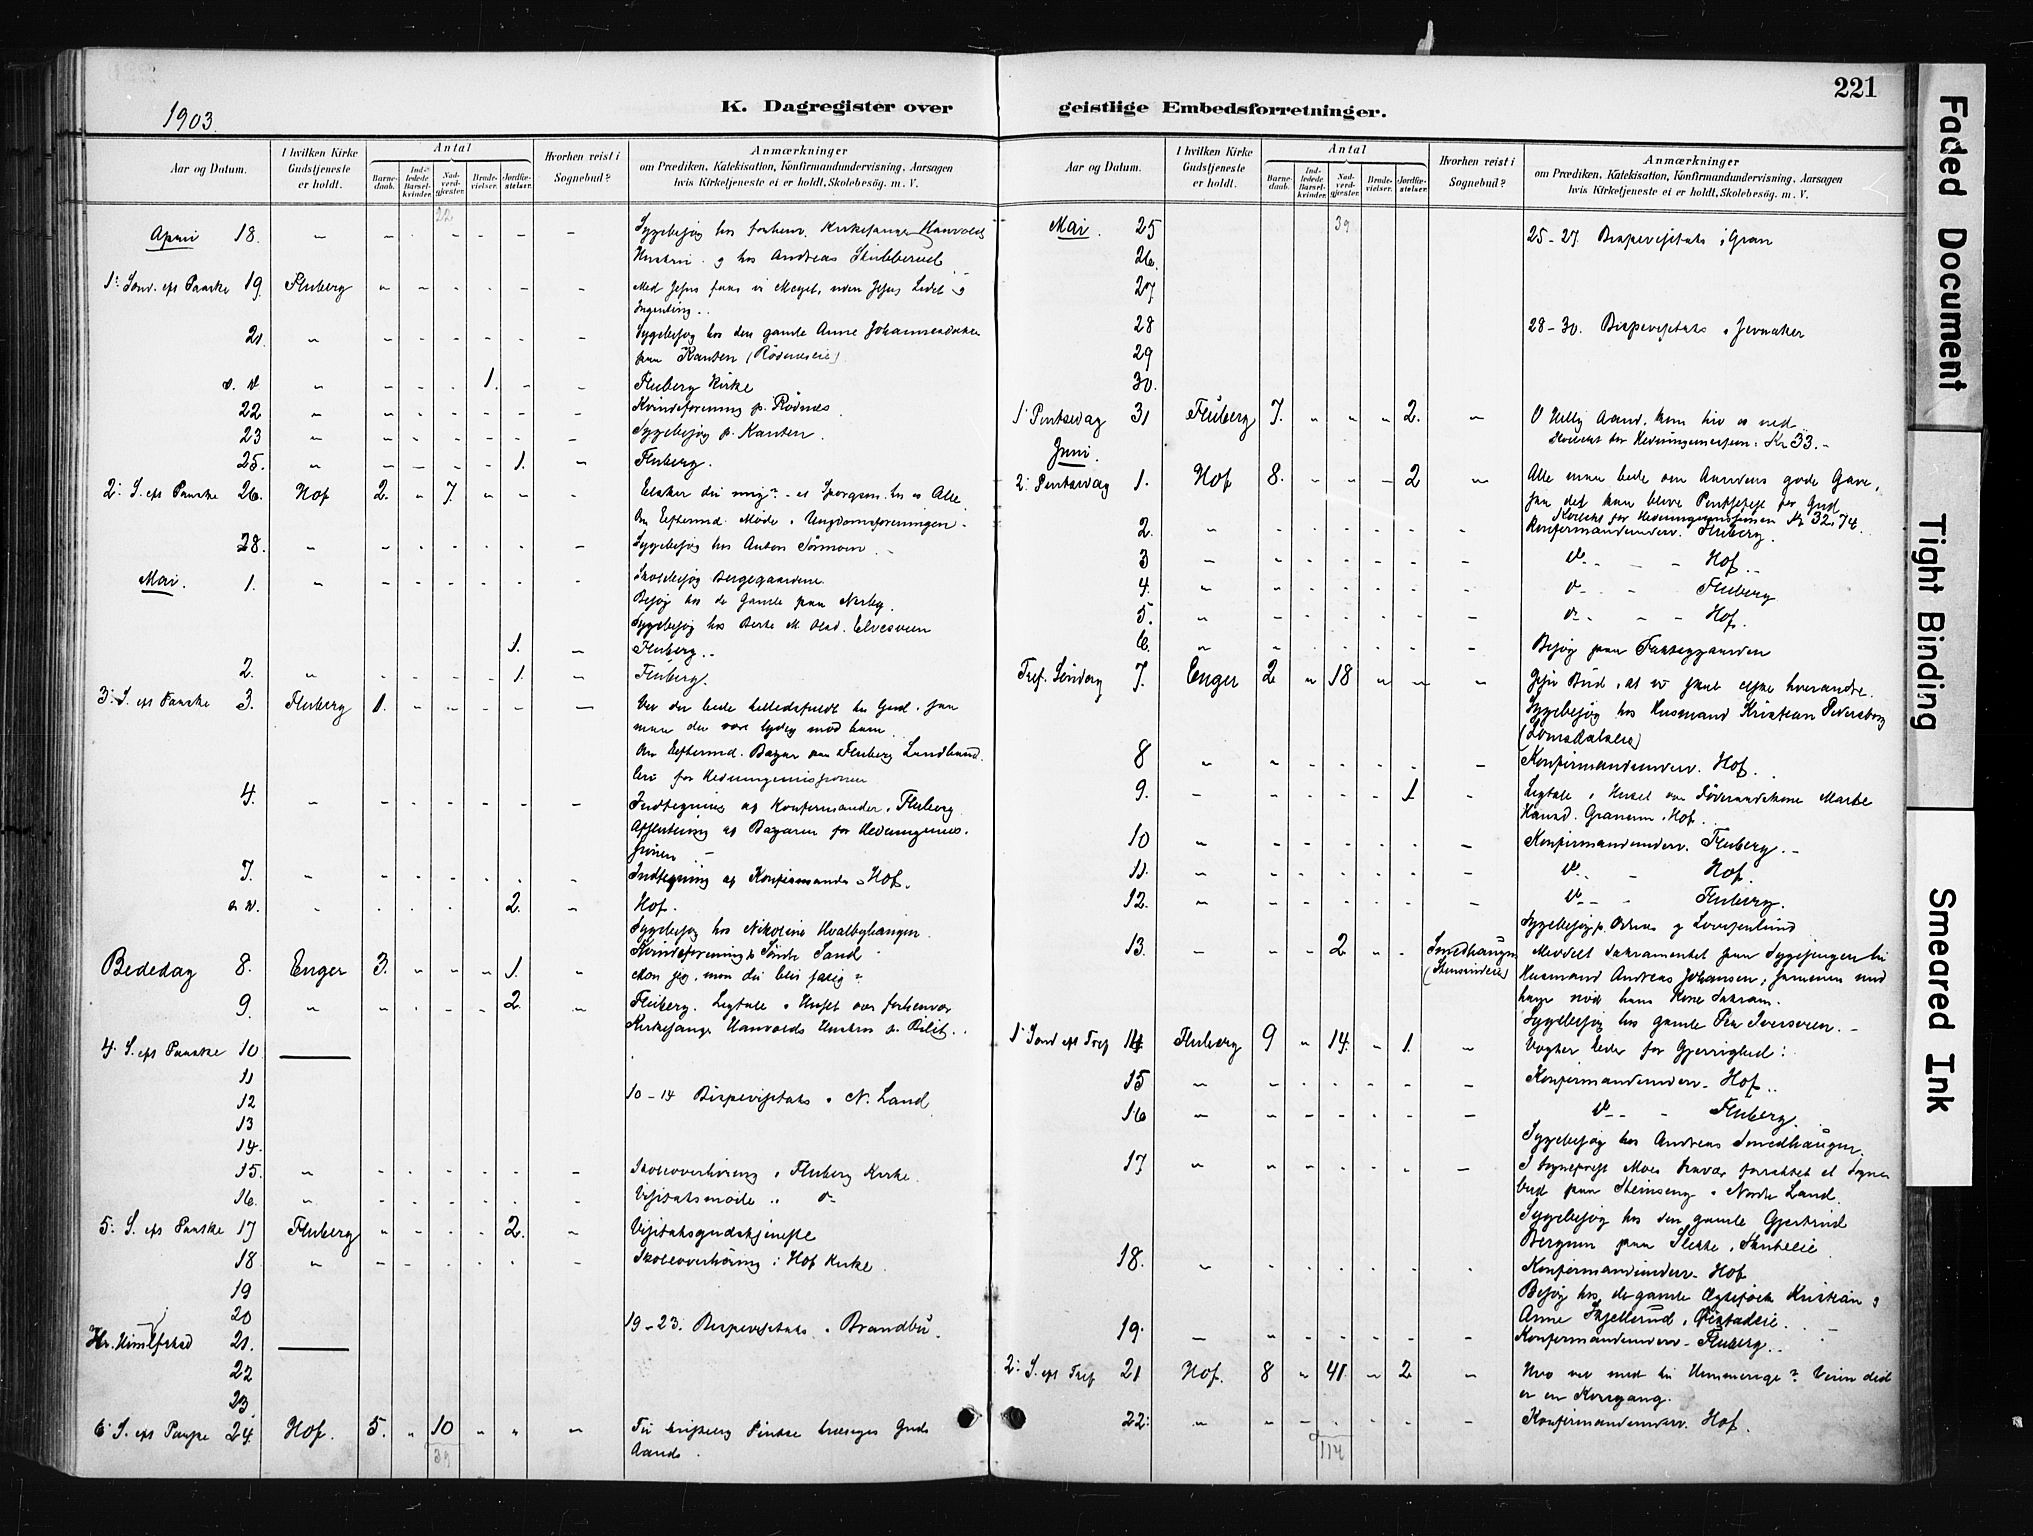 221
1903.
K. Dagregister over
geistlige Embedsforretninger.
Aar og Datum.
I hvilken Kirke Gudstjeneste er holdt.
Antal
Barnedaab.
Indledede Barselkvinder.
Nadverdgjester.
Brudevielser.
Jordfæstelser.
Hvorhen reist i Sognebud?
Anmærkninger
om Prædiken, Katekisation, Konfirmandundervisning, Aarsagen
hvis Kirketjeneste ei er holdt, Skolebesøg. m. V.
22
April 18. Sygebesøg hos forhenv. Kirkesanger Hanvolds
Hustru og hos Andreas
1: Sønd. eft Paaske 19. Fluberg Med Jesus faar vi Meget, uden Jesus Lidet og
Ingenting.
21 Sygebesøg hos den gamle Anne
paa Kanten (Rødneseie)
d. d. 1. Fluberg Kirke
22 Kvindeforening p. Rødnes
23 Sygebesøg p. Kanten.
25. 1. Fluberg.
2: S. eft Paaske 26. Hof 2. 7. Elsker du mig? - et Spørgsm. til os Alle
Om Eftermd. Møde i Ungdomsforeningen.
28. Sygebesøg hos Anton
Mai. 1. Skolebesøg Bergegaardene
Besøg hos de Gamle paa
Sygebesøg hos Berte M. Olsd. Elvesveen
1. Fluberg.
2. 1. Fluberg.
3: S. eft Paaske 3. Fluberg 1. Ver der bede tillidsfuldt til Gud, saa
maa der være lydig mod ham.
Om Eftermd. Bazar paa Fluberg
for Hedningemissionen
4. Indtegning af Konfirmander i Fluberg
Afslutning af Bazaren for Hedningemis-
sionen
7. Indtegning af Konfirmander i Hof.
s. d. 2. Hof.
Sygebesøg hos Nikoline Hvalbyhaugen
Kvindeforening p. Søndre Sand
Bededag 8. Enger 3. 1. Mon jeg, mon du blir salig?
9. 2. Fluberg. Ligtale i Huset over forhenvær
Kirkesanger Hanvolds Hustru p. Bilit.
4. S. eft Paaske 10
11
12 10-14 Bispevisitats i N. Land
13
14.
15. Skoleoverhøring i Fluberg Kirke.
16. Visitatsmøde i d-
5: S. eft Paaske 17 Fluberg 2. Visitatsgudstjeneste
18 Skoleoverhøring i Hof Kirke.
19
20 19-23. Bispevisitats i Brandbu.
Kr. Himmelfartsd 21.
22
23.
6 S. eft Paaske 24. Hof. 5. 10
Aand.
39
Aar og Datum.
I hvilken Kirke Gudstjeneste er holdt.
Antal
Barnedaab.
Indledede Barselkvinder.
Nadverdgjester.
Brudevielser.
Jordfæstelser.
Hvorhen reist i Sognebud?
Anmærkninger
om Prædiken, Katekisation, Konfirmandundervisning, Aarsagen
hvis Kirketjeneste ei er holdt, Skolebesøg. m. V.
39
Mai. 25 25-27. Bispevisitats i Gran
26.
27
28 28-30. Bispevisitats i Jevnaker
29
30.
1 Pintsedag 31 Fluberg 7. 2. O Hellig Aand, kom til os ned
Kollekt for Hedningemissionen: Kr 33.-
Juni.
2: Pintsedag 1. Hof 8. 2 Alle maa bede om Aandens gode Gave,
saa det kan blive Pintsefest for Gud
Kollekt for Hedningemissionen Kr 32,74.
2. Konfirmandunderv. Fluberg.
3 d- Hof.
4. d- Fluberg
5. d- Hof.
6. Besøg paa
Tref. Søndag 7. Enger 2 18 Jesu Bud, at vi skal elske hverandre.
Sygebesøg hos Husmand Kristian Pedersborg
(Lomsdalseie)
8 Konfirmandunderv. Hof.
9. 1 Ligtale i Huset over Føderaadskone Marte
Hansd. Granum i Hof.
10 Konfirmandunderv. Fluberg.
11. d- Hof
12. d- Fluberg.
Sygebesøg p. Odnes og
13. 2 Smedhaugen (Steinsrudeie) Meddelt Sakramentet paa Sygesengen til
Husmand Andreas Johansen, sammen med
ham nød hans Kone Sakram.
Sygebesøg hos gamle Per Iversveen.
1 Sønd eft Tref 14 Fluberg 9 14. 1. Vogter Eder for Gjerrighed!
15 Konfirmandunderv. Hof.
16 d- Fluberg.
Sygebesøg hos Andreas Smedhaugen.
17 I Sogneprest Moes Fravær forrettet et Sogne-
bud paa Steinseng i Nordre Land.
Sygebesøg hos den gamle Gjertrud
Bergum paa
18. Konfirmandunderv. Hof
Besøg hos de gamle Ægtefolk Kristian og
Anne Skjellerud,
19. Konfirmandunderv. Fluberg.
2: S. eft Tref 21 Hof. 8 41. 2 Hvo vil med til Himmerige? Veien did
er en Korsgang.
22. Konfirmandunderv. Hof.
114
Faded Document
Tight Binding
Smeared Ink